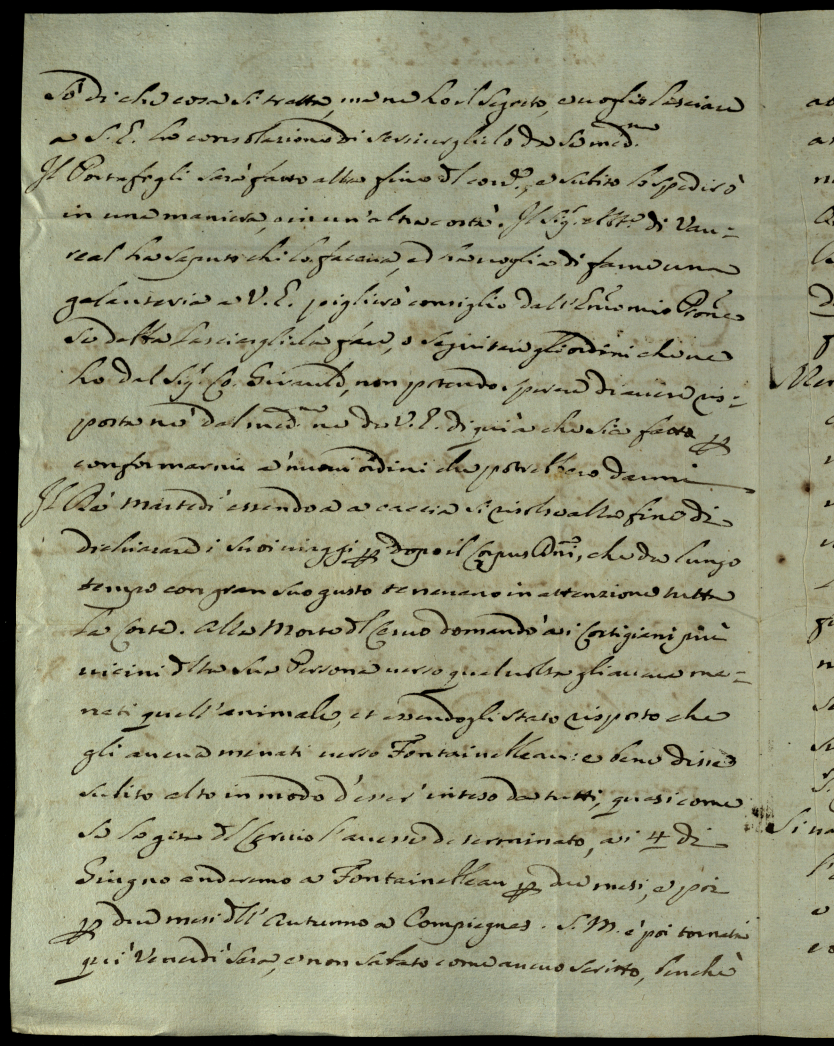 Sò di che cosa si tratta, ma ne ho il segreto, e voglio lasciare
a S. E. la consolazione di scriverglielo da se med.mo
Il Portafogli sarà fatto alla fine del cor.e, e subito lo spedirò
in una maniera, o in un'altra costà. Il Sig.r Abb.e di Vau=
real ha saputo chi lo faceva, ed ha voglia di farne una
galanteria a V. E. piglierò consiglio dall'Em̃o mio Pron̄e
se debba lasciargliela fare, o seguitare gli ordini che ne
ho dal Sig.r Co. Girauld, non potendo sperare di avere ris=
posta nè dal med.mo nè da V. E. di qui a che sia fatto p
conformarmi a' nuovi ordini che potrebbero darmi
Il Rè Martedì essendo a a caccia si risolse alla fine di
dichiarare i suoi viaggi p dopo il Corpus Dñi, che da lungo
tempo con gran suo gusto tenevano in attenzione tutta
la Corte. Alla Morte del Cervo domandò a i Cortigiani più
vicini della sua Persona verso qual volta gli aveva me=
nati quell'animale, et essendogli stato risposto che
gli aveva menati verso Fontainebleau: e bene disse
subito alto in modo d'esser' inteso da tutti, quasi come
se la gita del Cervio l'avesse determinato, a i 4 di
Giugno anderemo a Fontainebleau p due mesi, e poi
p due mesi dell'Autunno a Compiegnes. S. M. è poi tornata
quì Venerdì sera, e non sabato come avevo scritto, benchè